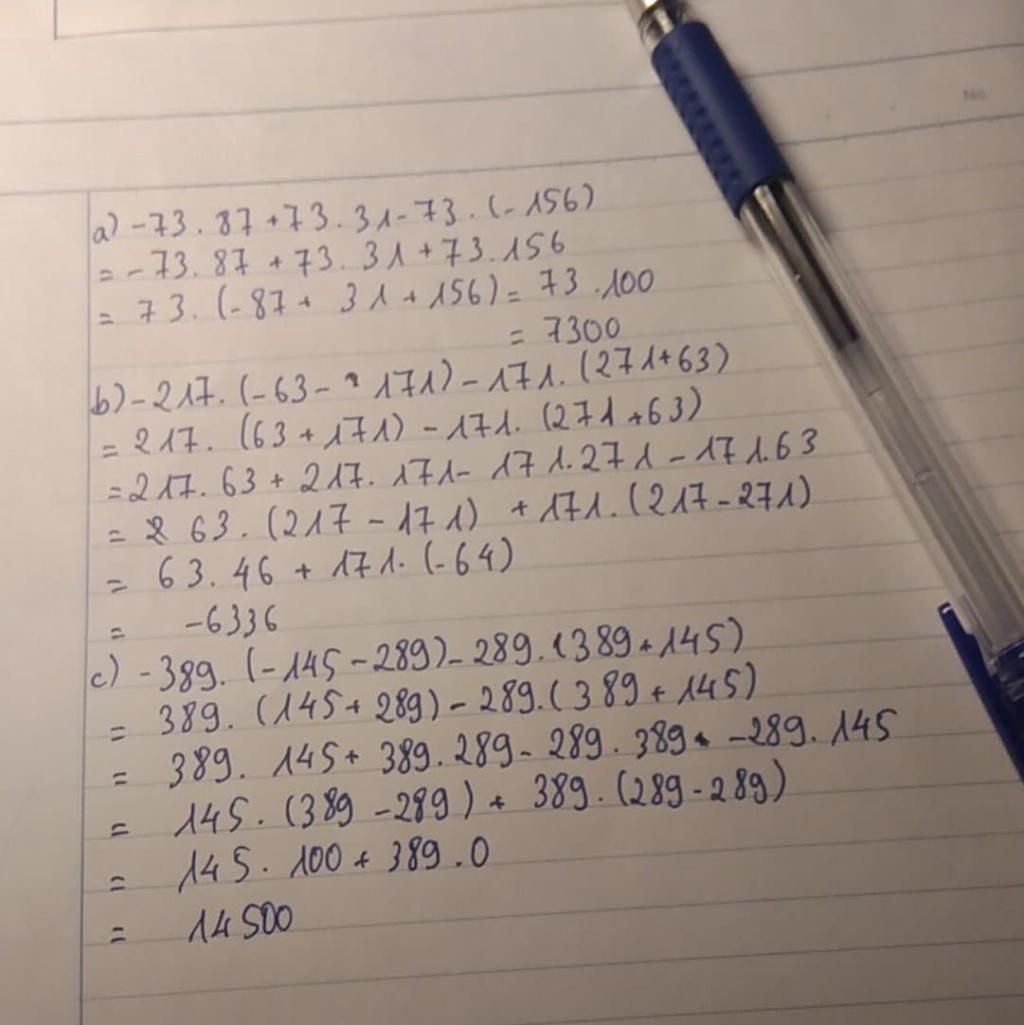 No.
a) -73.87+73.31-73.(-156)
= -73.87 + 73.31 + 73.156
= 73.(-87+ 31+156) = 73.100
= 7300
b) -217.(-63- 171) - 171.(271+63)
= 217. (63+171) - 171. (271+63)
= 217.63 + 217.171- 171.271 - 171.63
= 63.(217-171) +171.(217-271)
= 63.46 + 171.(-64)
= -6336
c) -389. (-145-289)-289.(389+145)
= 389. (145+ 289) - 289.(389 + 145)
= 389. 145+ 389.289- 289. 389 -289.145
= 145. (389 -289) + 389.(289-289)
= 145. 100 + 389.0
= 14500